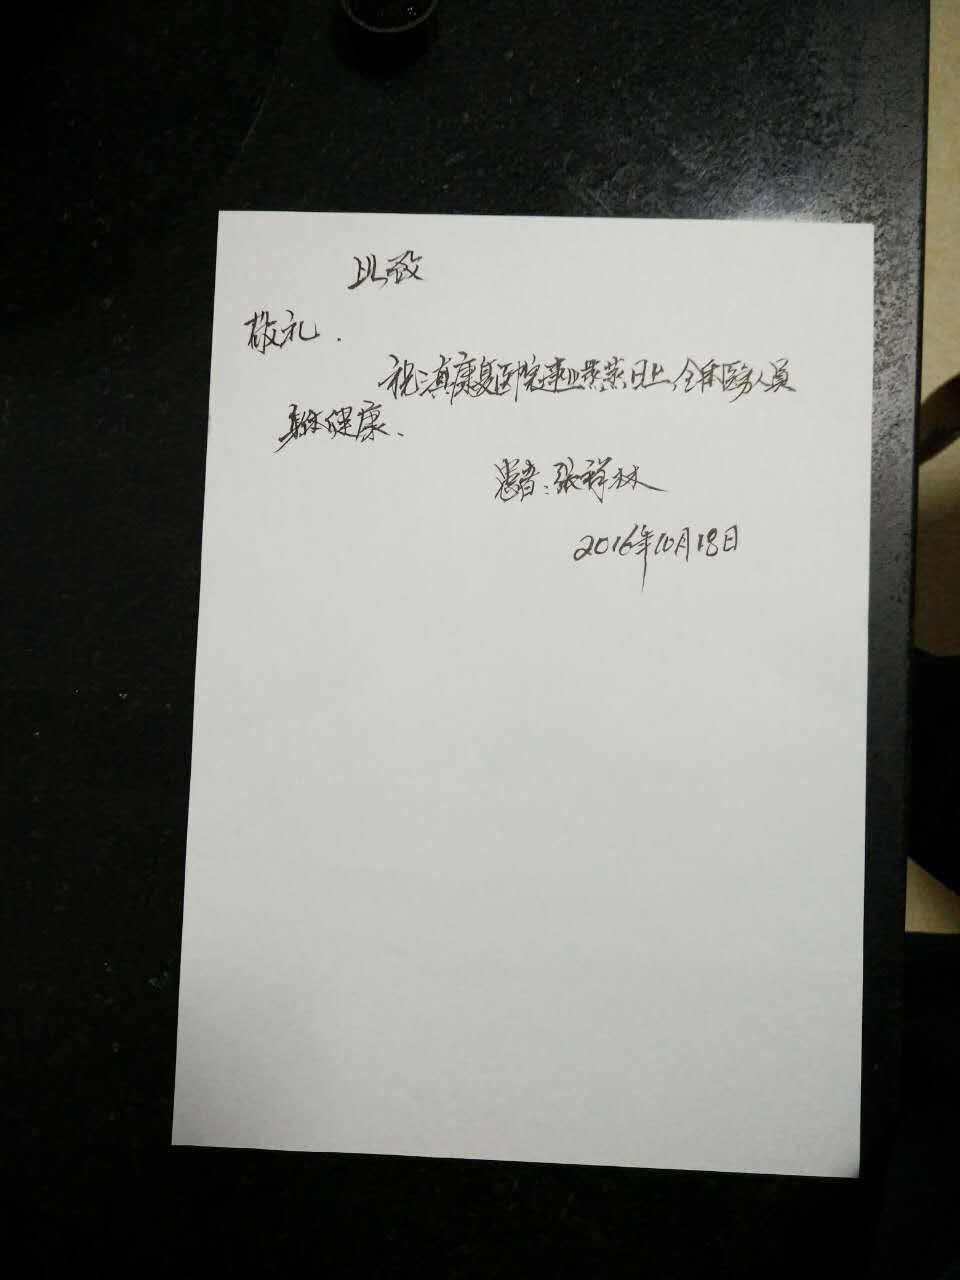 此致
敬礼.
祝滇康复医院事业蒸蒸日上 全体医务人员
身体健康.
患者:张祥林
2016年10月18日